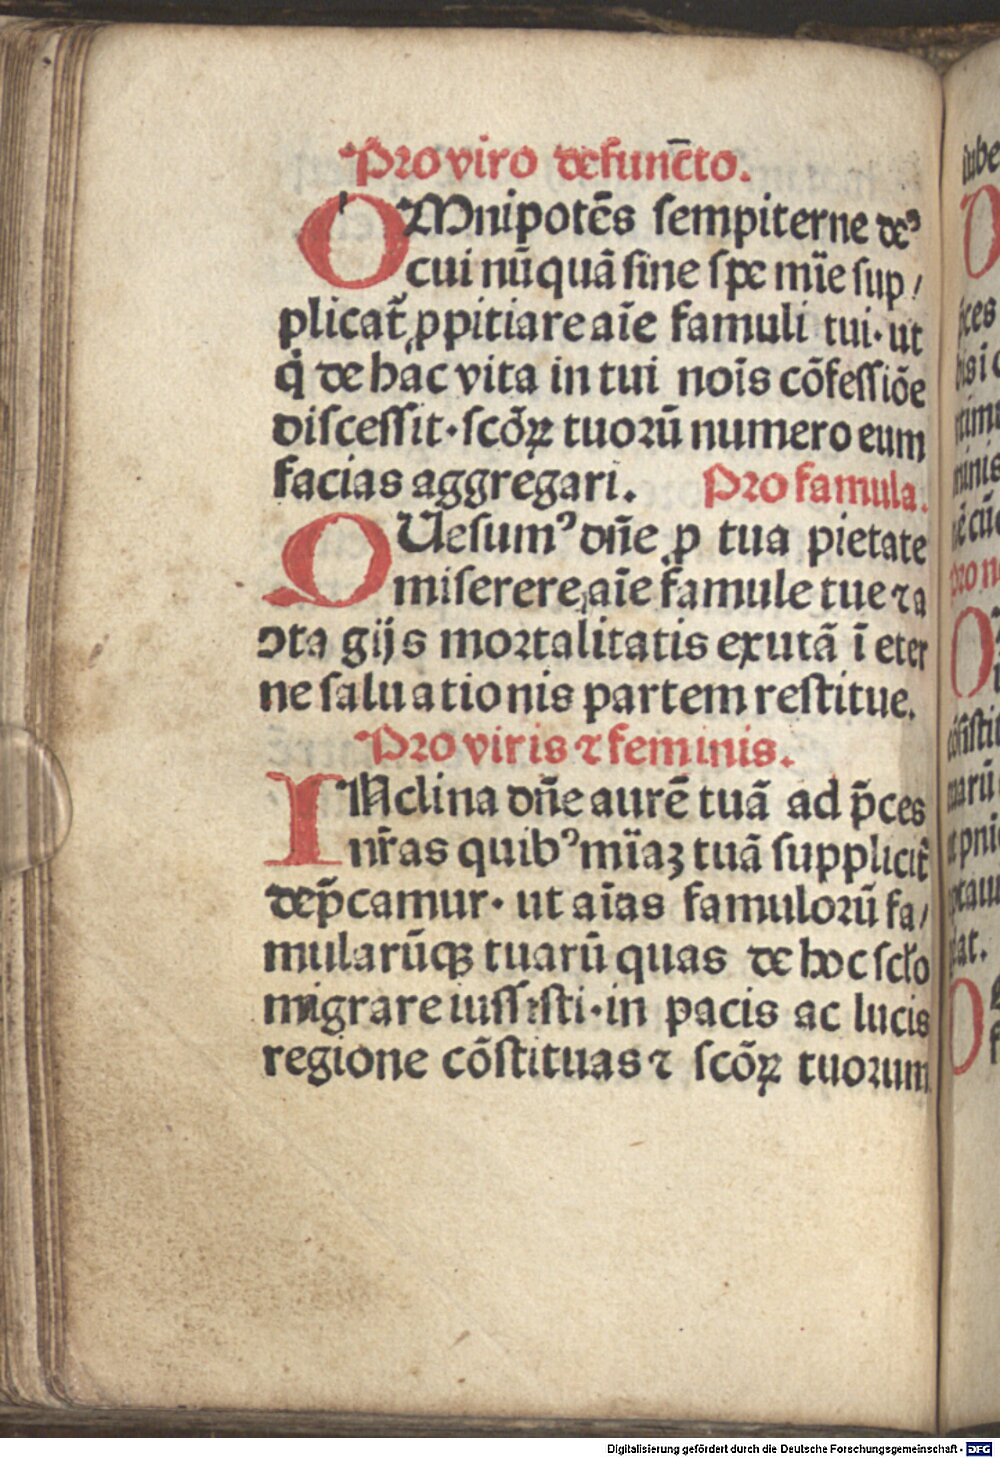 Pro viro defunc̄to.
OMnipotēs sempiterne deꝰ
cui nūquā sine spe mīe sup/
plicat᷑ ꝓpitiare aīe famuli tui· ut
q̇ de hac vita in tui noīs cōfessiōe
discessit· scōꝝ tuorū numero eum
facias aggregari. Pro famula.
QUesumꝰ dn̄e ꝓ tua pietate
miserere aīe famule tue ⁊ a
ↄta gijs mortalitatis exutā ī eter
ne saluationis partem restitue.
Pro viris ⁊ feminis.
INclina dn̄e aurē tuā ad p̄ces
nr̄as quibꝰ mīaꝫ tuā supplicit᷑
dep̄camur· ut aīas famulorū fa/
mularūqꝫ tuarū quas de hoc scło
migrare iussisti· in pacis ac lucis
regione cōstituas ⁊ scōꝝ tuorum
Digitalisierung gefördert durch die Deutsche Forschungsgemeinschaft - DFG